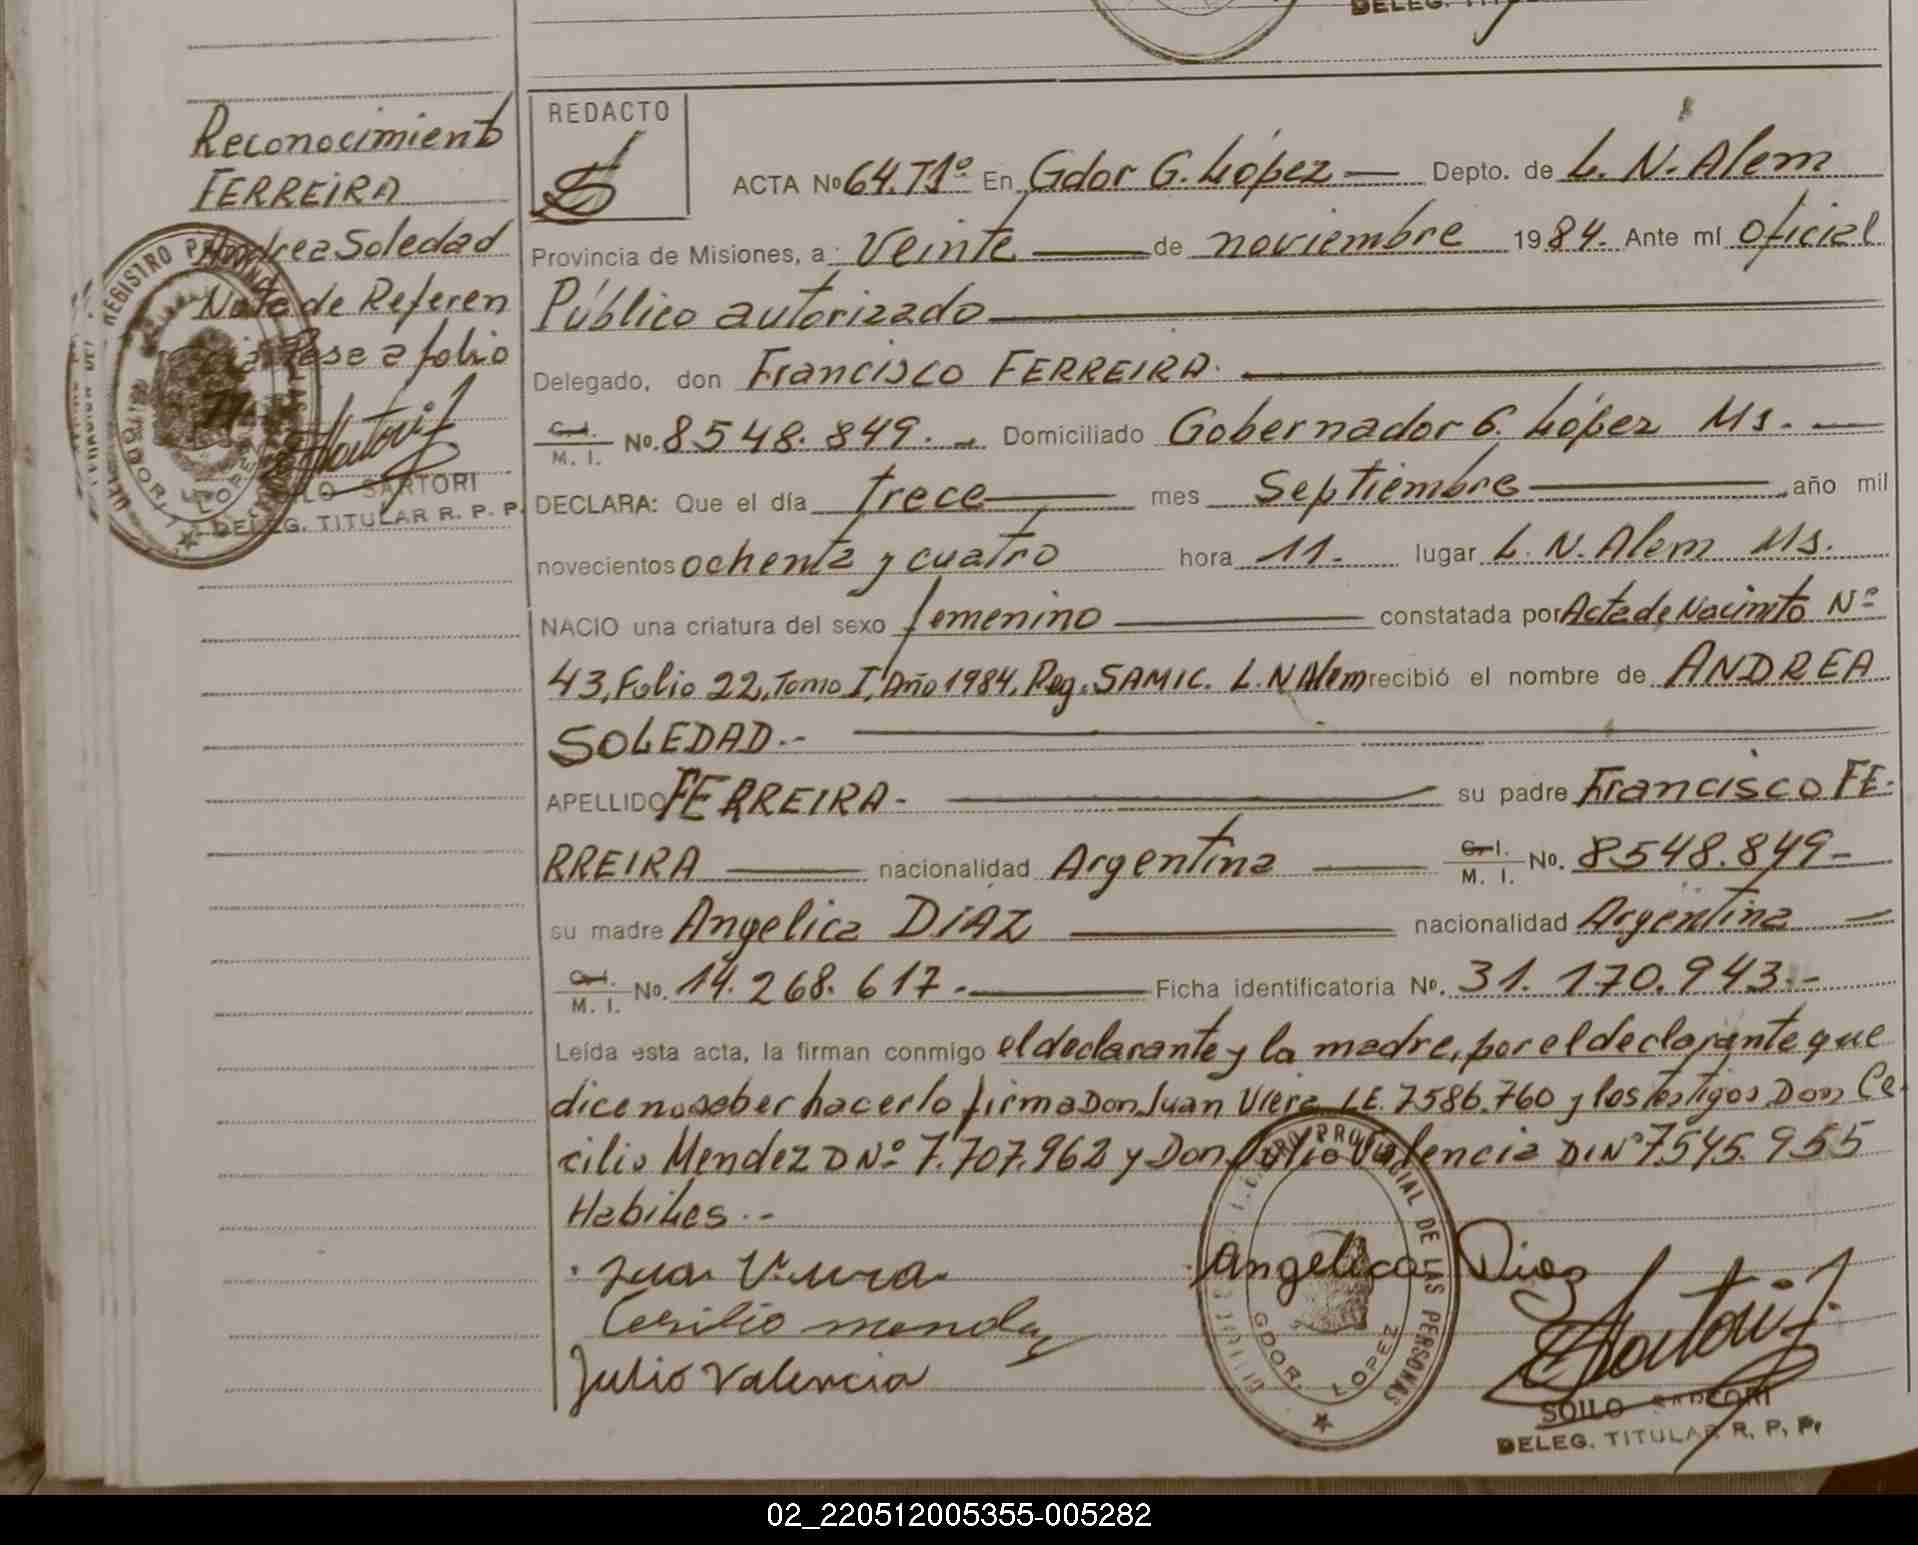 DELEG. TIT
Reconocimiento
FERREIRA
Andrea Soledad
Nota de Referen
cia Pase a folio
SARTORI
DELEG. TITULAR R. P. P.
REDACTO
ACTA Nº 64. T1º En Gdor G. López — Depto. de L. N. Alem
Provincia de Misiones, a Veinte — de noviembre 1984. Ante mí oficial
Público autorizado
Delegado, don Francisco FERREIRA.
C. I. M. I. No. 8548.849. Domiciliado Gobernador G. López Ms.
DECLARA: Que el día trece mes Septiembre, año mil
novecientos ochenta y cuatro hora 11. lugar L. N. Alem Ms.
NACIO una criatura del sexo femenino constatada por Acta de Nacimto Nº
43, Folio 22, Tomo I, Año 1984, Reg. SAMIC. L. N Alem recibió el nombre de ANDREA
SOLEDAD.-
APELLIDO FERREIRA- su padre Francisco FE-
RREIRA nacionalidad Argentina C. I. M. I. No. 8548.849-
su madre Angelica DIAZ nacionalidad Argentina
C. I. M. I. No. 14.268.617.- Ficha identificatoria Nº. 31.170.943.-
Leída esta acta, la firman conmigo el declarante y la madre, por el declarante que
dice no saber hacerlo firma Don Juan Viera LE. 7586.760 y los testigos Don Ce
cilio Mendez D Nº 7.707.962 y Don Julio Valencia DI Nº 7545.955
Habiles.-
Juan Viera
Cesilio mendez
Julio Valencia
Angelica Diaz
REGISTRO PROVINCIAL DE LAS PERSONAS
GDOR. LOPEZ
SOILO SARTORI
DELEG. TITULAR R. P. P.
02_220512005355-005282